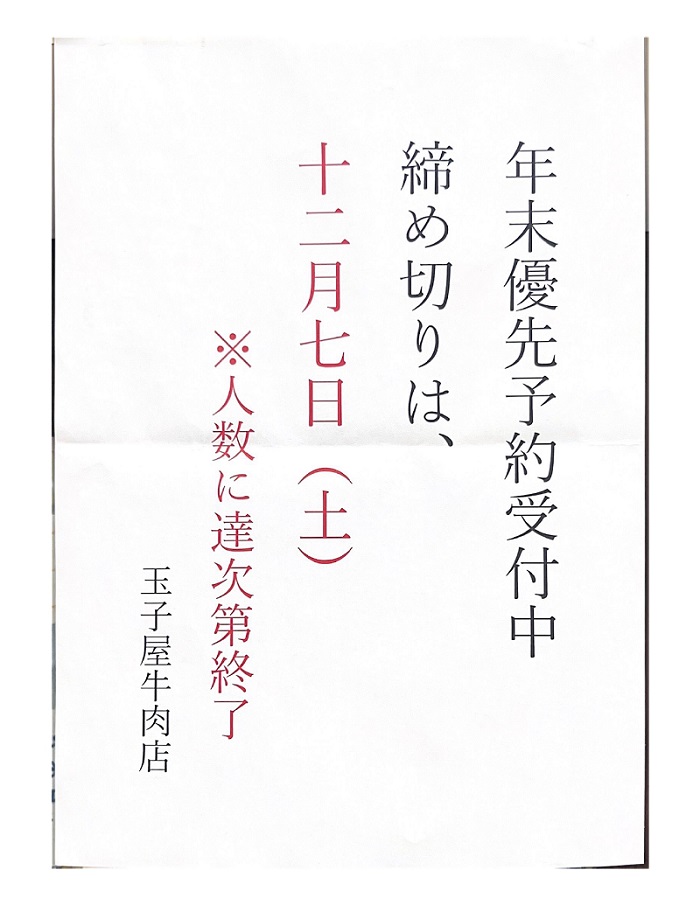 年末優先予約受付中
締め切りは、
十二月七日（土）
※人数に達次第終了
玉子屋牛肉店